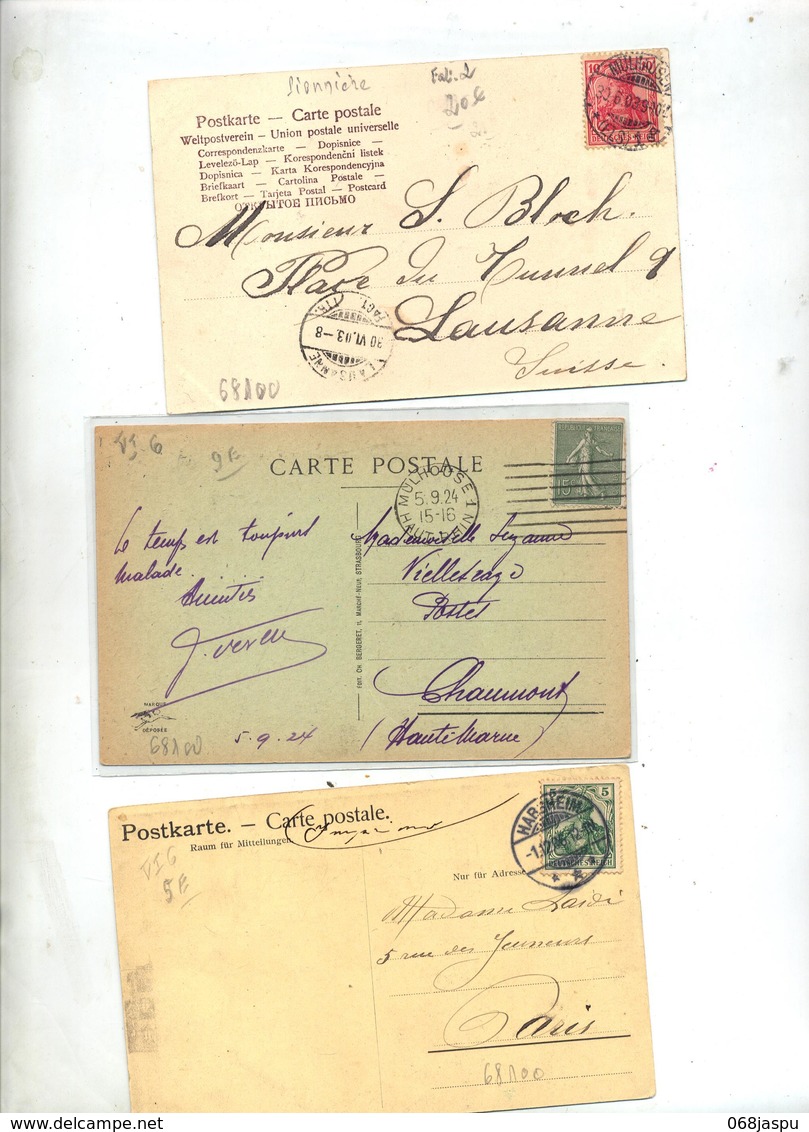 pionnière
Postkarte — Carte postale
Weltpostverein – Union postale universelle
Correspondenzkarte – Dopisnice –
Levelező-Lap – Korespondenční listek
Dopisnica – Karta Korespondencyjna
Briefkaart – Cartolina Postale –
Brefkort – Tarjeta Postal – Postcard
ОТКРЫТОЕ ПИСЬМО
10
MÜLHAUSEN
DEUTSCHES REICH
Monsieur S. Bloch.
Place du Tunnel 9
Lausanne
Suisse.
LAUSANNE
30 VI. 03 – 8
FACT.
68100
VI 6
9E
CARTE POSTALE
MULHOUSE
5.9.24
15-16
HAUT-RHIN
REPUBLIQUE FRANÇAISE
15c
Le temps est toujours
malade.
Amitiés
Mademoiselle Suzanne
Postes
Chaumont
(Haute Marne)
EDIT. CH. BERGERET, 11, MARCHÉ-NEUF, STRASBOURG
MARQUE
DÉPOSÉE
68100
5.9.24
Postkarte. — Carte postale.
Raum für Mitteilungen
Nur für Adresse
VI 6
5E
5
DEUTSCHES REICH
HABSHEIM
Madame
5 rue des Jeuneurs
Paris
68100
068jaspu